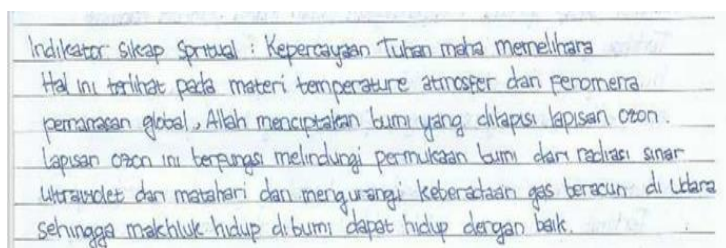 Indikator sikap Spritual : Kepercayaan Tuhan maha memelihara
Hal ini terlihat pada materi temperature atmosfer dan fenomena
pemanasan global, Allah menciptakan bumi yang dilapisi lapisan ozon.
Lapisan ozon ini berfungsi melindungi permukaan bumi dari radiasi sinar
ultraviolet dari matahari dan mengurangi keberadaan gas beracun di Udara
sehingga makhluk hidup dibumi dapat hidup dengan baik.